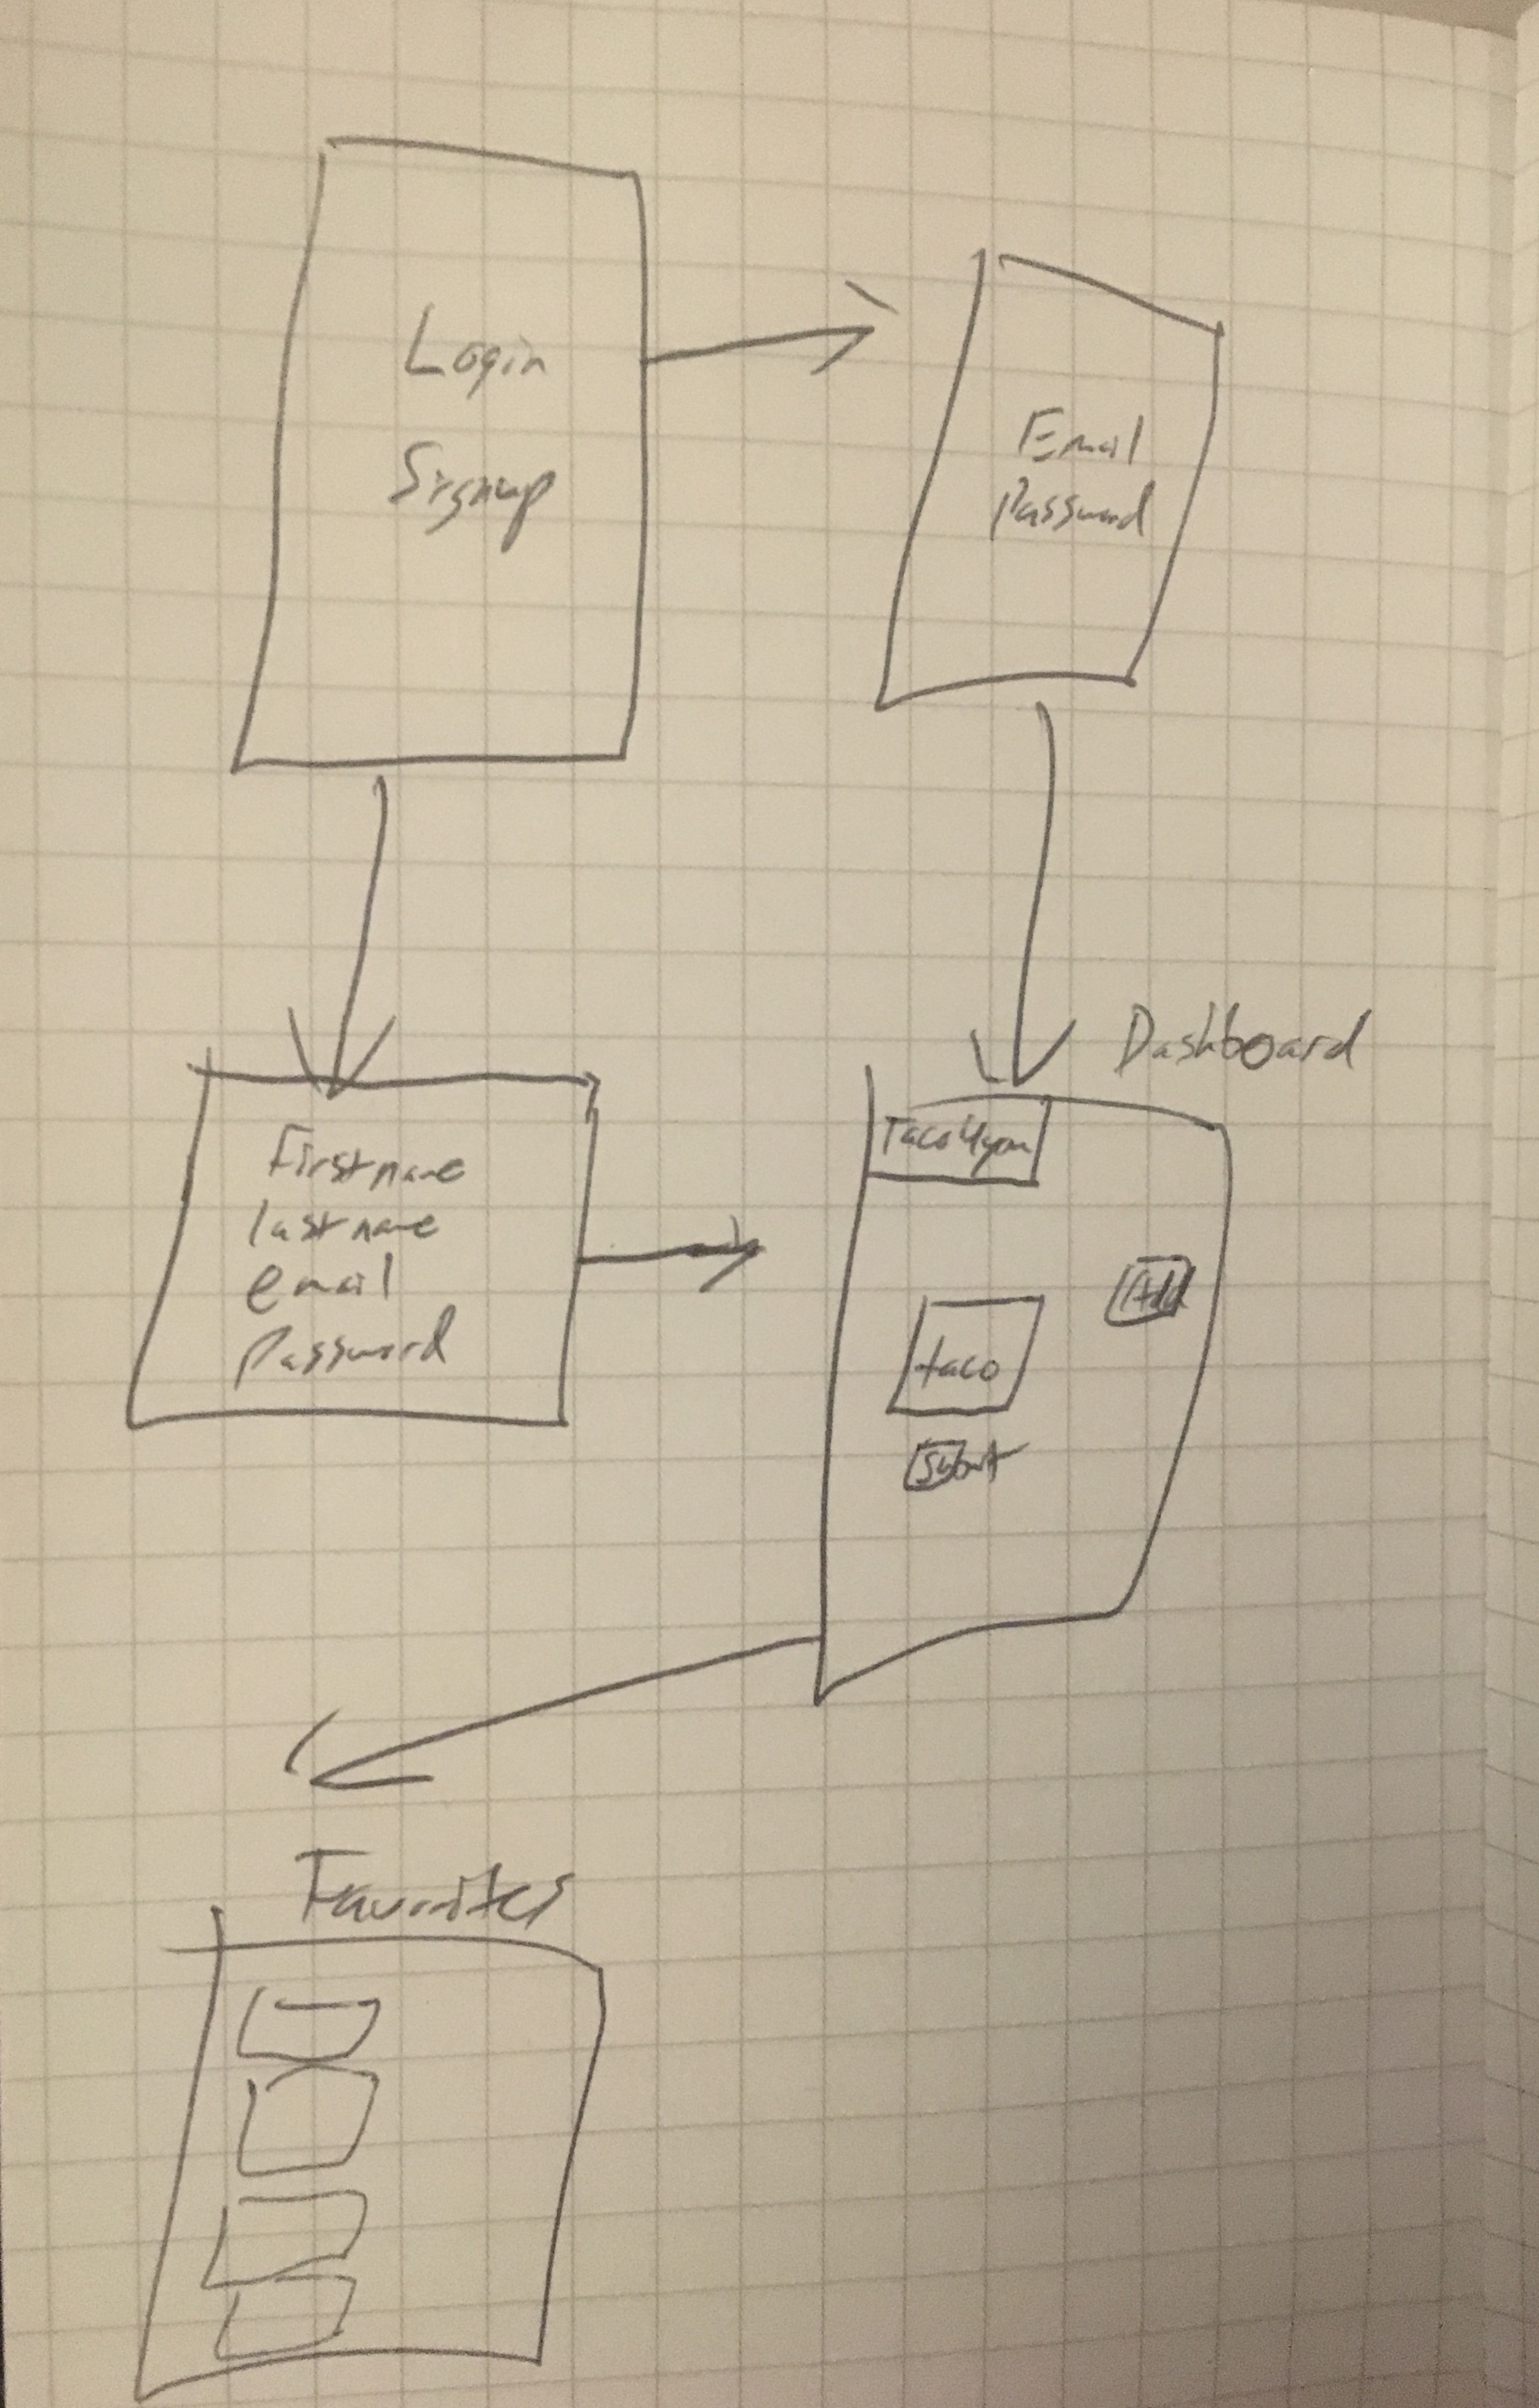 Login
Signup
Email
Password
Firstname
lastname
email
Password
Dashboard
Add
taco
Submit
Favorites